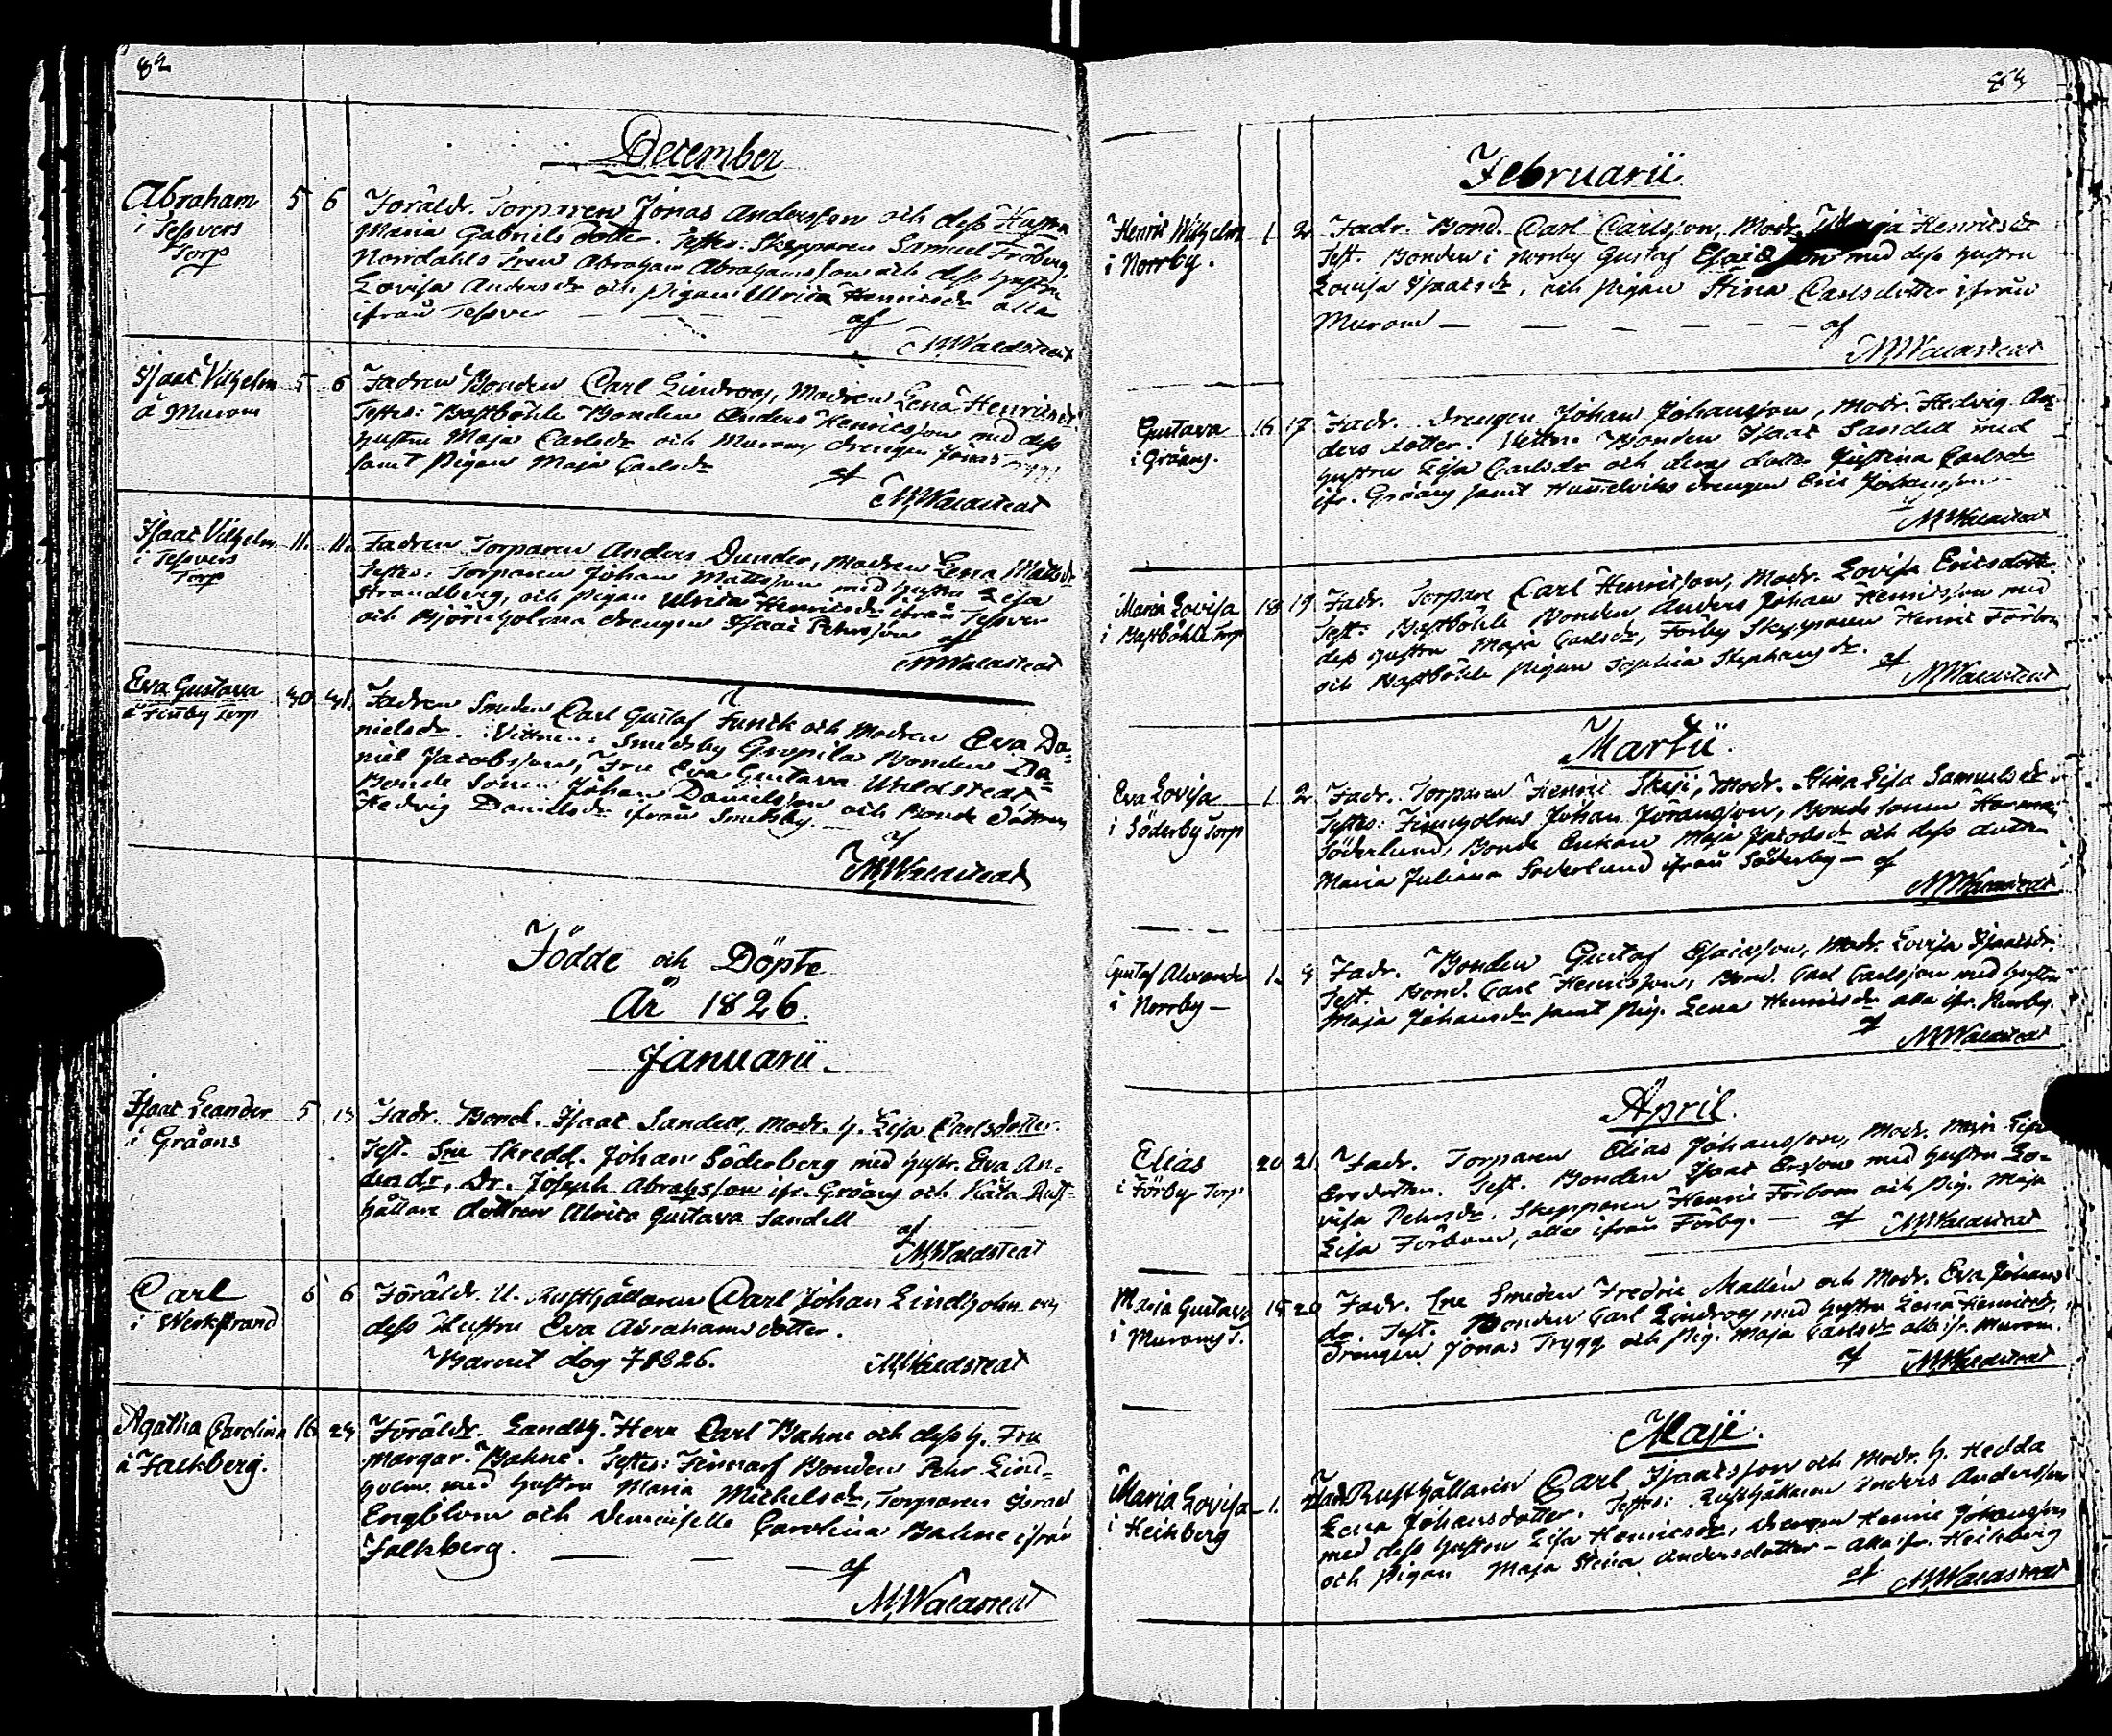 82
December
Abraham
i Tessvers
Torp
5 6
Föräldr. Torparen Jonas Andersson och dess Hustru
Maria Gabriels dotter. Testes. Skepparen Samuel Fröberg,
Norrdahls Abraham Abrahamsson och dess hustru
Lovisa Andersdr och pigan Ulrica Henricsdr alla
ifrån Tessver — af
M Waldstedt
Isaac Vilhelm
å Murom
5 6
Fadren Bonden Carl Lindroos, Modren Lena Henricsdr
Testes: Bastböhle Bonden Anders Henricsson med dess
hustru Maja Carlsdr och Muroms drengen Jonas Trygg
samt Pigan Maja Carlsdr
af
M Waldstedt
Isaac Vilhelm
i Tessvers
Torp
11. 11.
Fadren Torparen Anders Dunder, Modren Lena Mattsdr
Testes: Torparen Johan Mattsson med hustru Lisa
Strandberg, och pigan Ulrica Henricsdr ifrån Tessver
och Björnholma drengen Isaac Pehrsson af
M Waldstedt
Eva Gustava
å Finby Torp
30. 31.
Fadren Smeden Carl Gustaf Funck och Modren Eva Da-
nielsdr. Vittnen: Smedsby Gropila Bonden Da-
niel Jacobsson, Fru Eva Gustava Waldstedt
Bonde Sonen Johan Danielsson och Bonde Dottren
Hedvig Danielsdr ifrån Smedsby
af
M Waldstedt
Födde och Döpte
År 1826.
Januarii
Isaac Leander
i Gråäns
5. 13
Fadr. Bond. Isaac Sandell, Modr. h. Lisa Carlsdotter.
Test. Skredd. Johan Söderberg med hustr. Eva An-
dersdr, Dr. Joseph Abrahsson ifr. Gråäns och Rust-
hållare dottren Ulrica Gustava Sandell
af
M Waldstedt
Carl
i Werkstrand
6 6
Föräldr. U. Rusthållaren Carl Johan Lindholm och
dess Hustru Eva Abrahams dotter.
Barnet dog 7 1826. M Waldstedt
Agatha Carolina
å Falkberg.
16. 23
Föräldr. Landtg. Herr Carl Bahne och dess h. Fru
Margar. Bahne. Testes: Finnarf Bonden Pehr Lind-
holm med hustru Maria Michelsdr, Torparen Israel
Engblom och demoiselle Carolina Bahne ifrån
Falkberg. — af
M Waldstedt
83
Februarii
Henric Wilhelm
i Norrby.
1 2
Fadr. Bond. Carl Carlsson, Modr. Maja Henricsdr
Test. Bonden i Norrby Gustaf Esaiasson med dess hustru
Lovisa Isaacsdr, och pigan Stina Carlsdotter ifrån
Murom — af
M Waldstedt
Gustava
i Gråäns.
16 17
Fadr. Drengen Johan Johansson, Modr. Hedvig An-
ders dotter. Vittn. Bonden Isaac Sandell med
hustru Lisa Carlsdr och deras dotter Justina Carlsdr
ifr. Gråäns samt drengen Eric Johansson
M Waldstedt
Maria Lovisa
i Bastböhle Torp
18 19
Fadr. Torpare Carl Henricsson, Modr. Lovisa Ericsdotter
Test: Bastböhle Bonden Anders Johan Henricsson med
dess hustru Maja Carlsdr, Förby Skepparen Henric Förbom
och Bastböhle Pigan Sophia Stephansdr.
af M Waldstedt
Martii.
Eva Lovisa
i Söderby Torp
1 2
Fadr. Torparen Henric Skeji, Modr. Stina Lisa Samuelsdr
Testes: Finnholms Johan Göransson, Bonde sonen Herman
Söderlund, Bonde Enkan Maja Jacobsdr och dess dotter
Maria Juliana Söderlund ifrån Söderby — af
M Waldstedt
Gustaf Alexander
i Norrby —
1. 3
Fadr. Bonden Gustaf Esaiasson, Modr. Lovisa Isaacsdr.
Test. Bond. Carl Henricsson, Bond. Carl Carlsson med hustru
Maja Johansdr samt Pig. Lena Henricsdr alla ifr. Norrby.
af M Waldstedt
April.
Elias
i Förby Torp
20 21.
Fadr. Torparen Elias Johansson, Modr. Maja Lisa
Ersdotter. Test. Bonden Isaac Ersson med hustru Lo-
visa Pehrsdr. Skepparen Henric Förbom och Pig. Maja
Lisa Förbom, alla ifrån Förby. — af M Waldstedt
Maria Gustava
i Muroms T.
19 20
Fadr. Smeden Fredric Mallén och Modr. Eva Johans
dr. Test. Bonden Carl Lindroos med hustru Lena Henricsdr,
Drengen Jonas Trygg och Pig. Maja Carlsdr alla ifr. Murom.
af M Waldstedt
Maji.
Maria Lovisa
i Heikberg
1.
Fadr. Rusthållaren Carl Isaacsson och Modr. h. Hedda
Lena Johansdotter. Testes: Rusthållaren Anders Andersson
med dess hustru Lisa Henricsdr, drengen Henric Johansson
och Pigan Maja Stina Andersdotter — alla ifr. Heikberg
af M Waldstedt